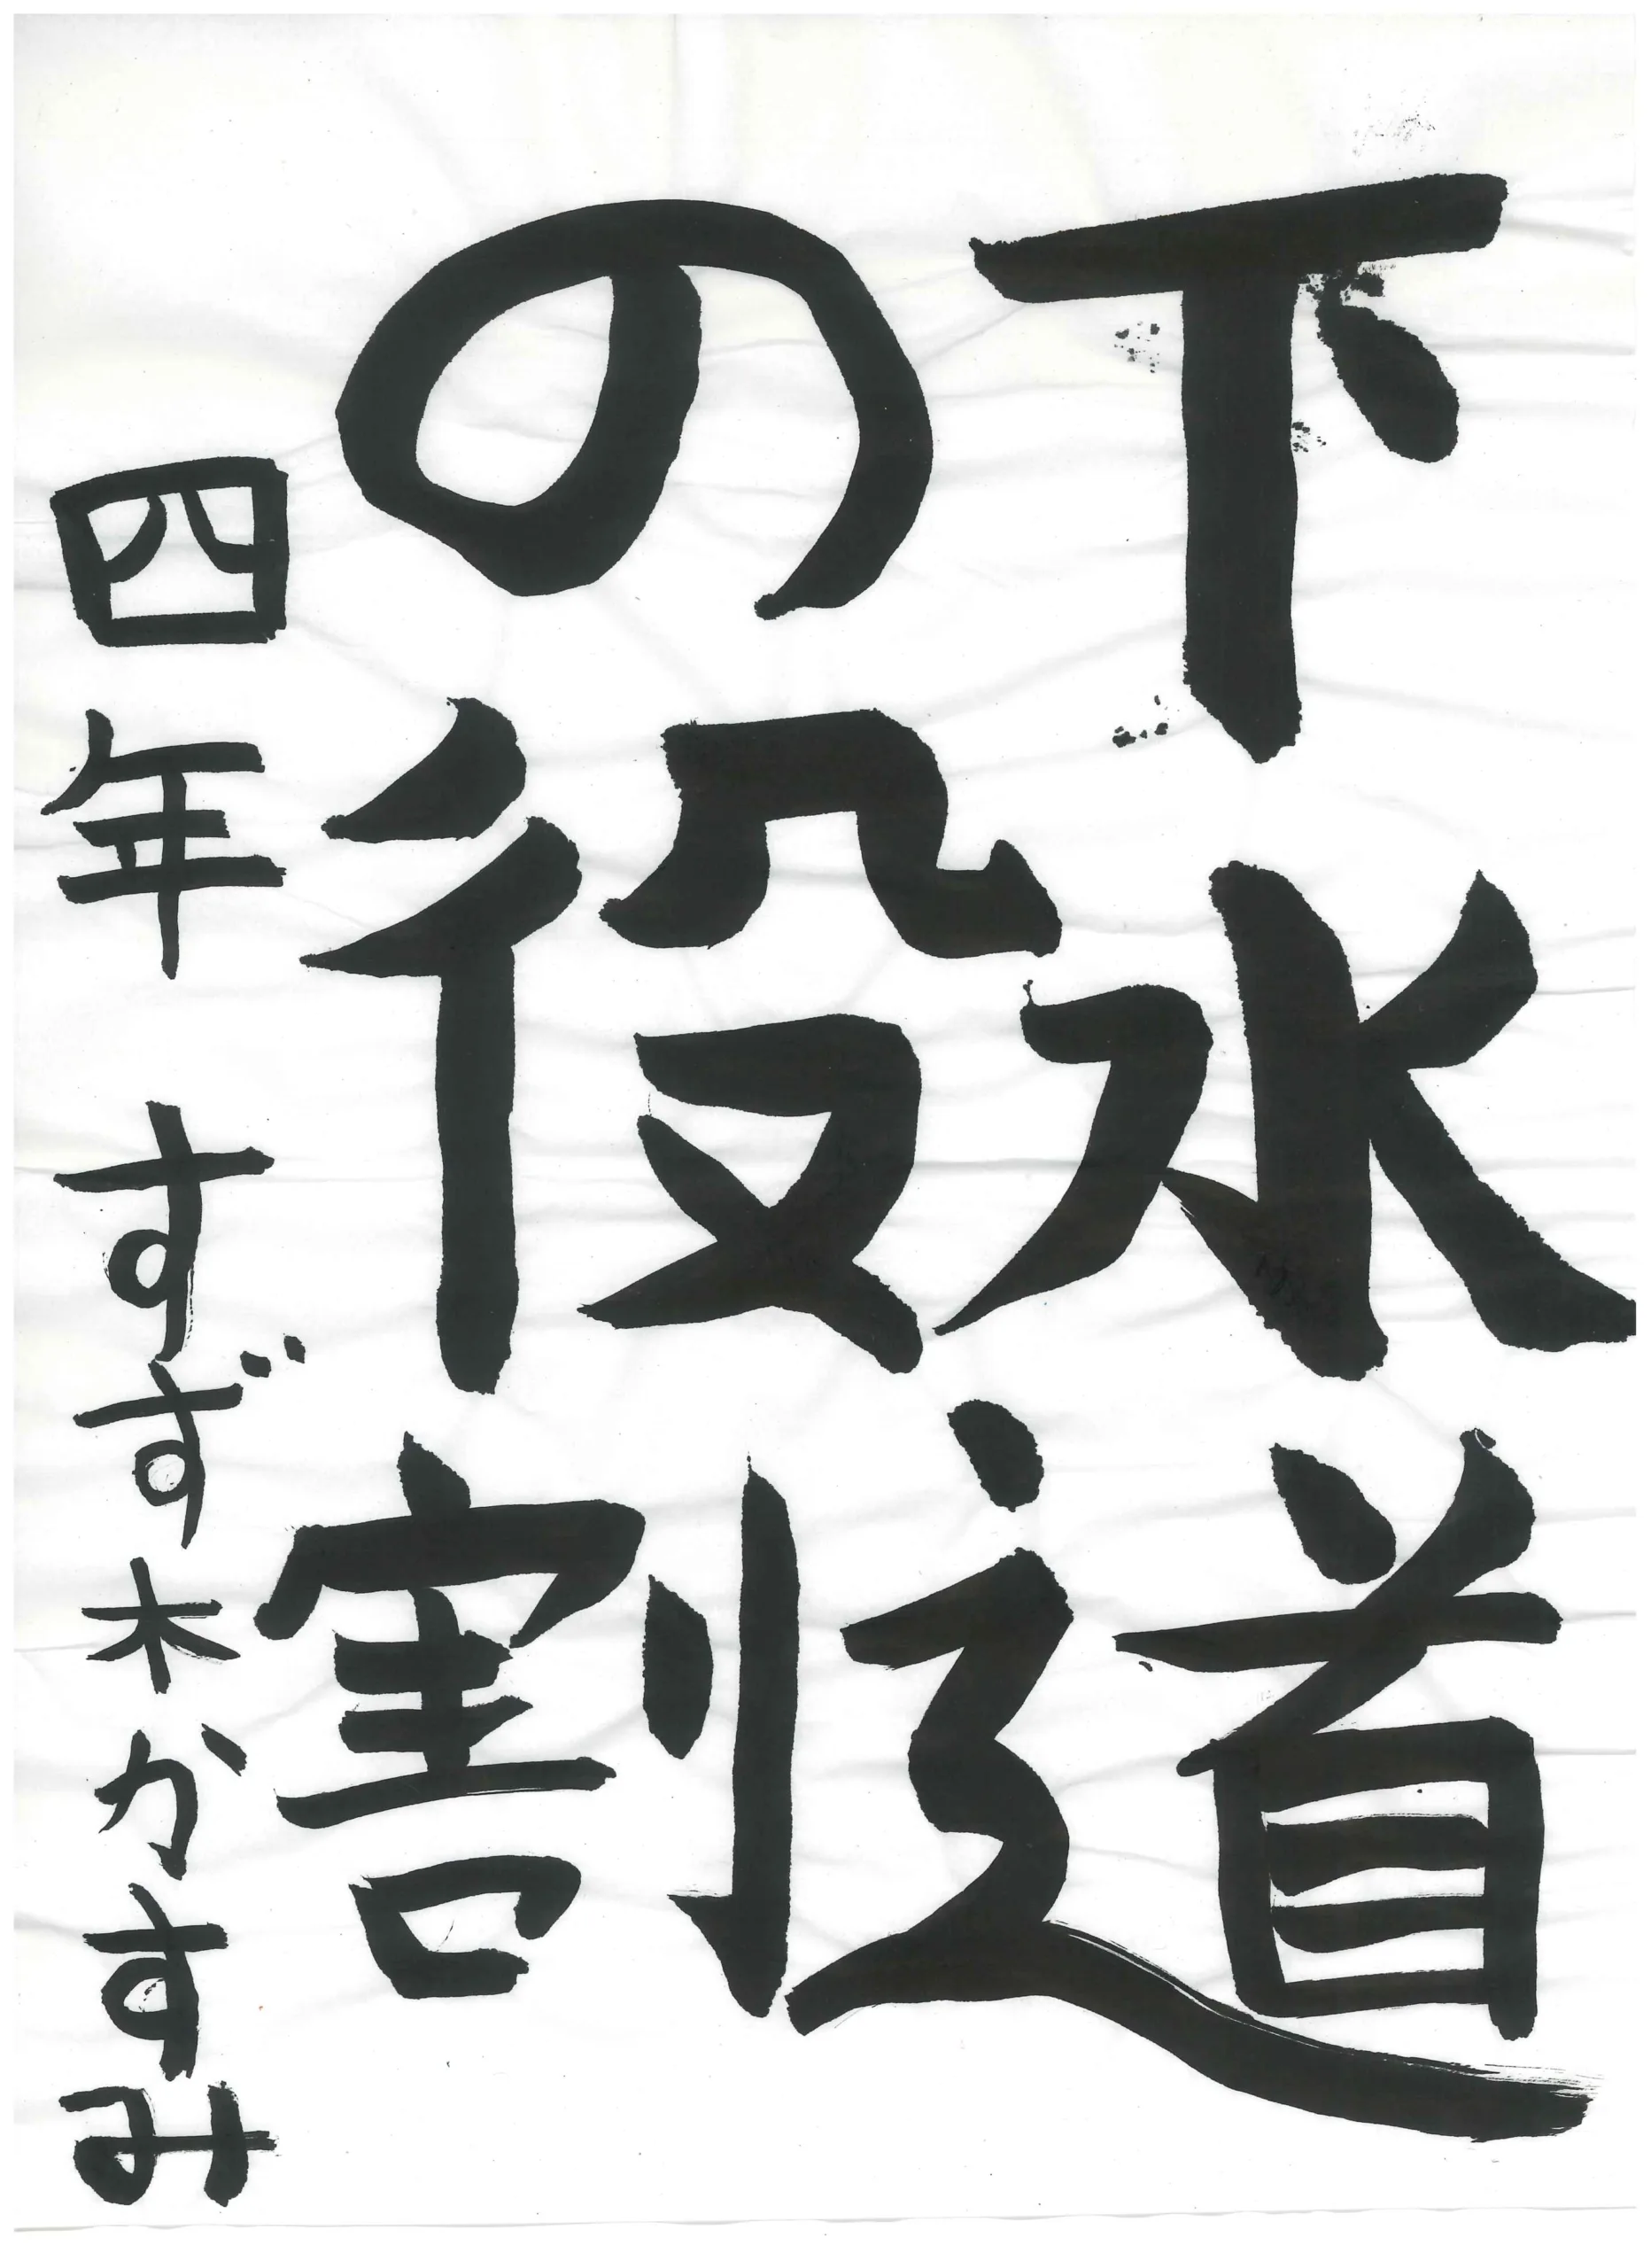 下水道
の役割
四年 すず木かすみ